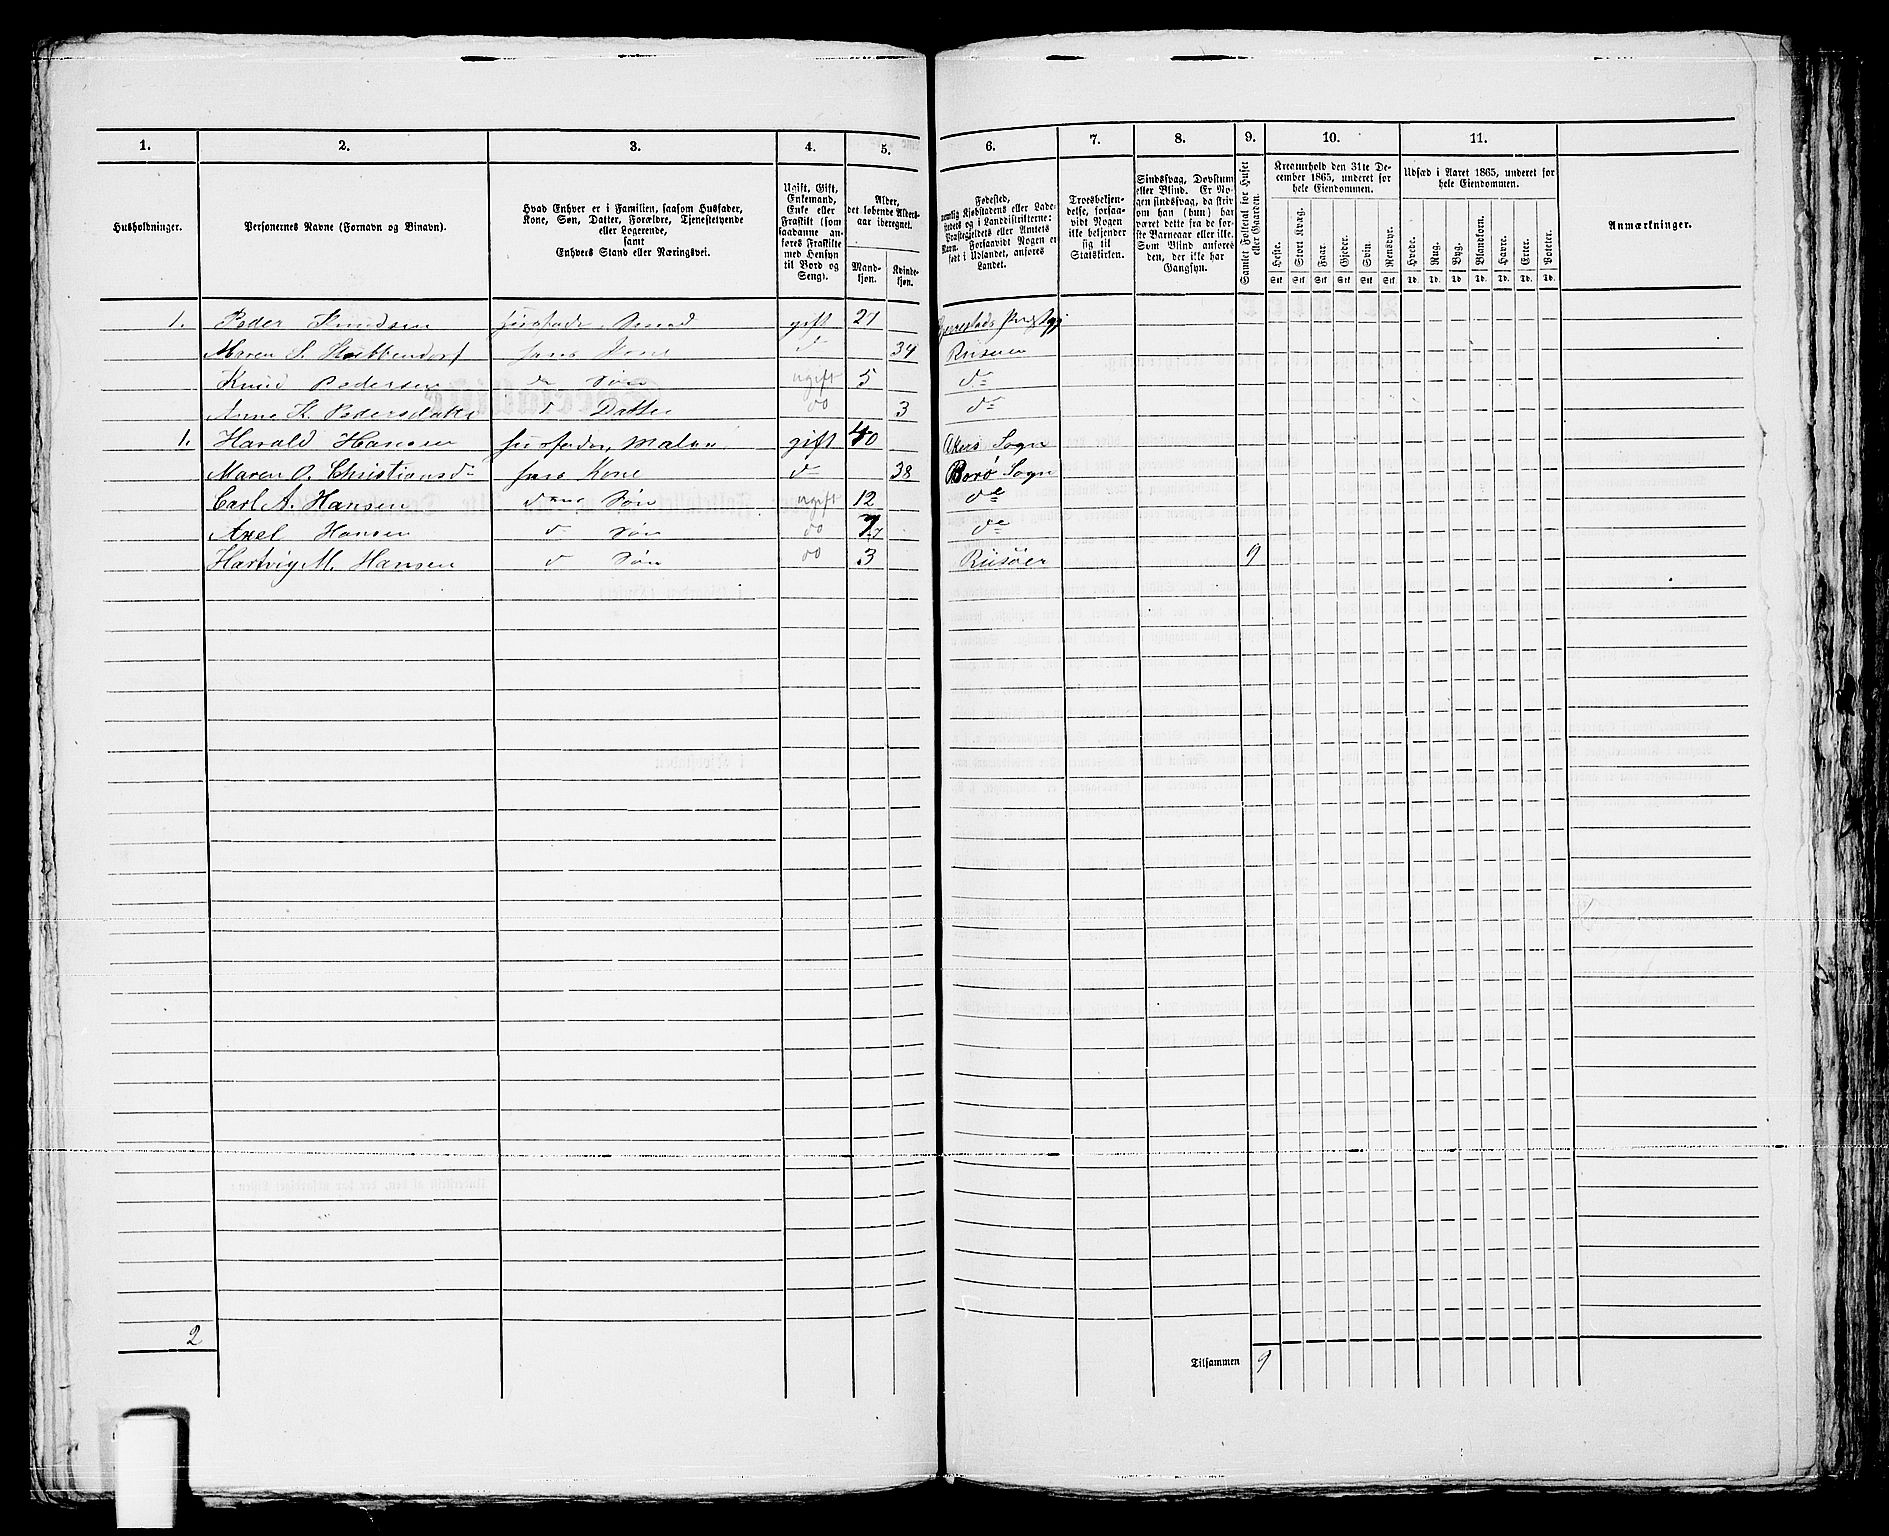 1. 2. 3. 4. 5. 6. 7. 8. 9. 10. 11.
Husholdninger.
Personernes Navne (Fornavn og Binavn).
Hvad Enhver er i Familien, saasom Husfader,
Kone, Søn, Datter, Forældre, Tjenestetyende
eller Logerende,
samt
Enhvers Stand eller Næringsvei.
Ugift, Gift,
Enkemand,
Enke eller
Fraskilt (som
saadanne an-
føres Fraskilte
med Hensyn
til Bord og
Seng).
Alder,
det løbende Alders-
aar iberegnet.
Mand-
kjøn.
Kvinde-
kjøn.
Fødested,
nemlig Kjøbstadens eller Lade-
stedets og i Landdistrikterne:
Præstegjeldets eller Amtets
Navn. Forsaavidt Nogen er
født i Udlandet, anføres
Landet.
Troesbekjen-
delse, forsaa-
vidt Nogen
ikke bekjender
sig til
Statskirken.
Sindssvag, Døvstum
eller Blind. Er No-
gen sindssvag, da skriv
om han (hun) har
været dette fra de før-
ste Barneaar eller ille.
Som Blind anføres
den, der ikke har
Gangsyn.
Samlet Folketal for Huset
eller Gaarden.
Kreaturhold den 31te De-
cember 1865, underet for
hele Eiendommen.
Heste. Stort Kvæg. Faar. Gjeder. Svin. Rensdyr.
Stk. Stk. Stk. Stk. Stk. Stk.
Udsæd i Aaret 1865, underet for
hele Eiendommen.
Hvede. Rug. Byg. Blandkorn. Havre. Erter. Poteter.
Td. Td. Td. Td. Td. Td. Td.
Anmærkninger.
1. Peder Knudsen gift 27
Maren S. hans Kone d 34 Riisøer
Knud Pedersen d Søn ugift 5 do
Anne K. Pedersdatter d Datter do 3 do
1. Harald Hansen husfader, Maler gift 40 Akers Sogn
Maren O. Christiansd hans Kone d 38 Borø Sogn
Carl A. Hansen Søn ugift 12 de
Axel Hansen d Søn do 7 de
Hartvig M. Hansen d Søn do 3 Riisøer 9
2
Tilsammen 9